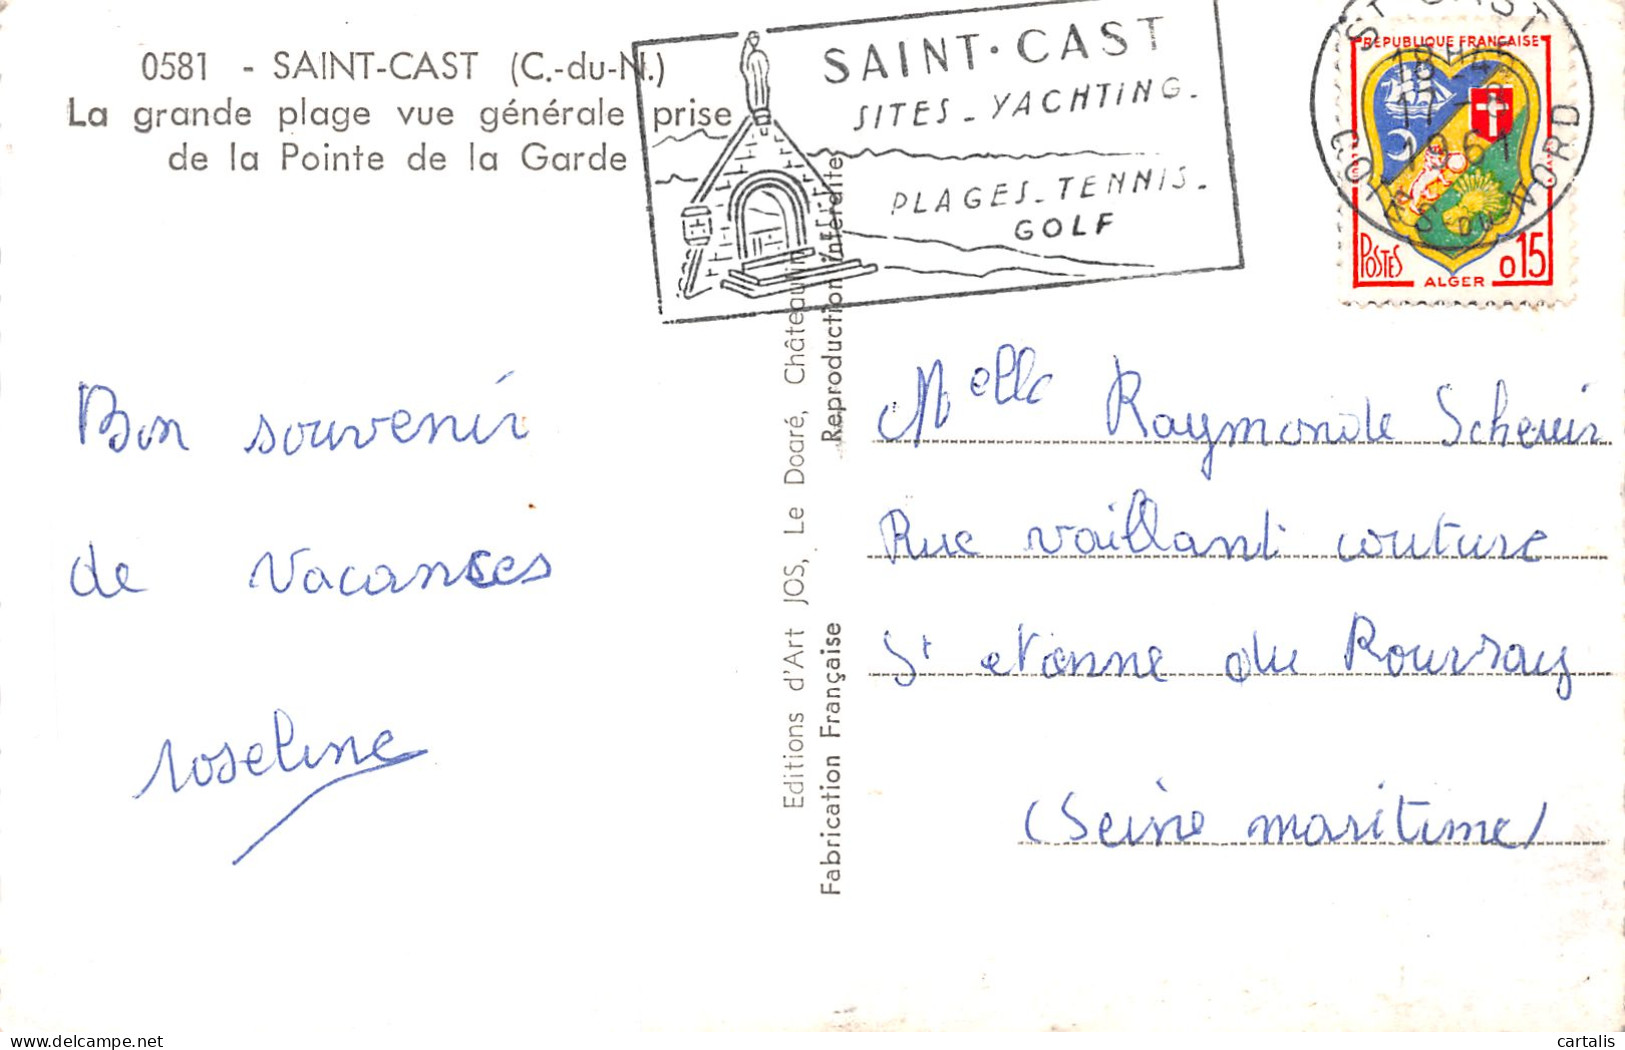 0581 - SAINT-CAST (C.-du-N.)
La grande plage vue générale prise
de la Pointe de la Garde
SAINT·CAST
SITES _ YACHTING _
PLAGES _ TENNIS _
GOLF
ST CAST
18H45
17 -8
1961
CÔTES-DU-NORD
REPUBLIQUE FRANÇAISE
POSTES
ALGER
0,15
Bon souvenir
de Vacances
roseline
Editions d'Art JOS, Le Doaré, Châteaulin
Fabrication Française
Reproduction interdite
Melle Raymonde
Rue vaillant couture
St etienne du Rouvray
(Seine maritime)
cartalis
delcampe.net